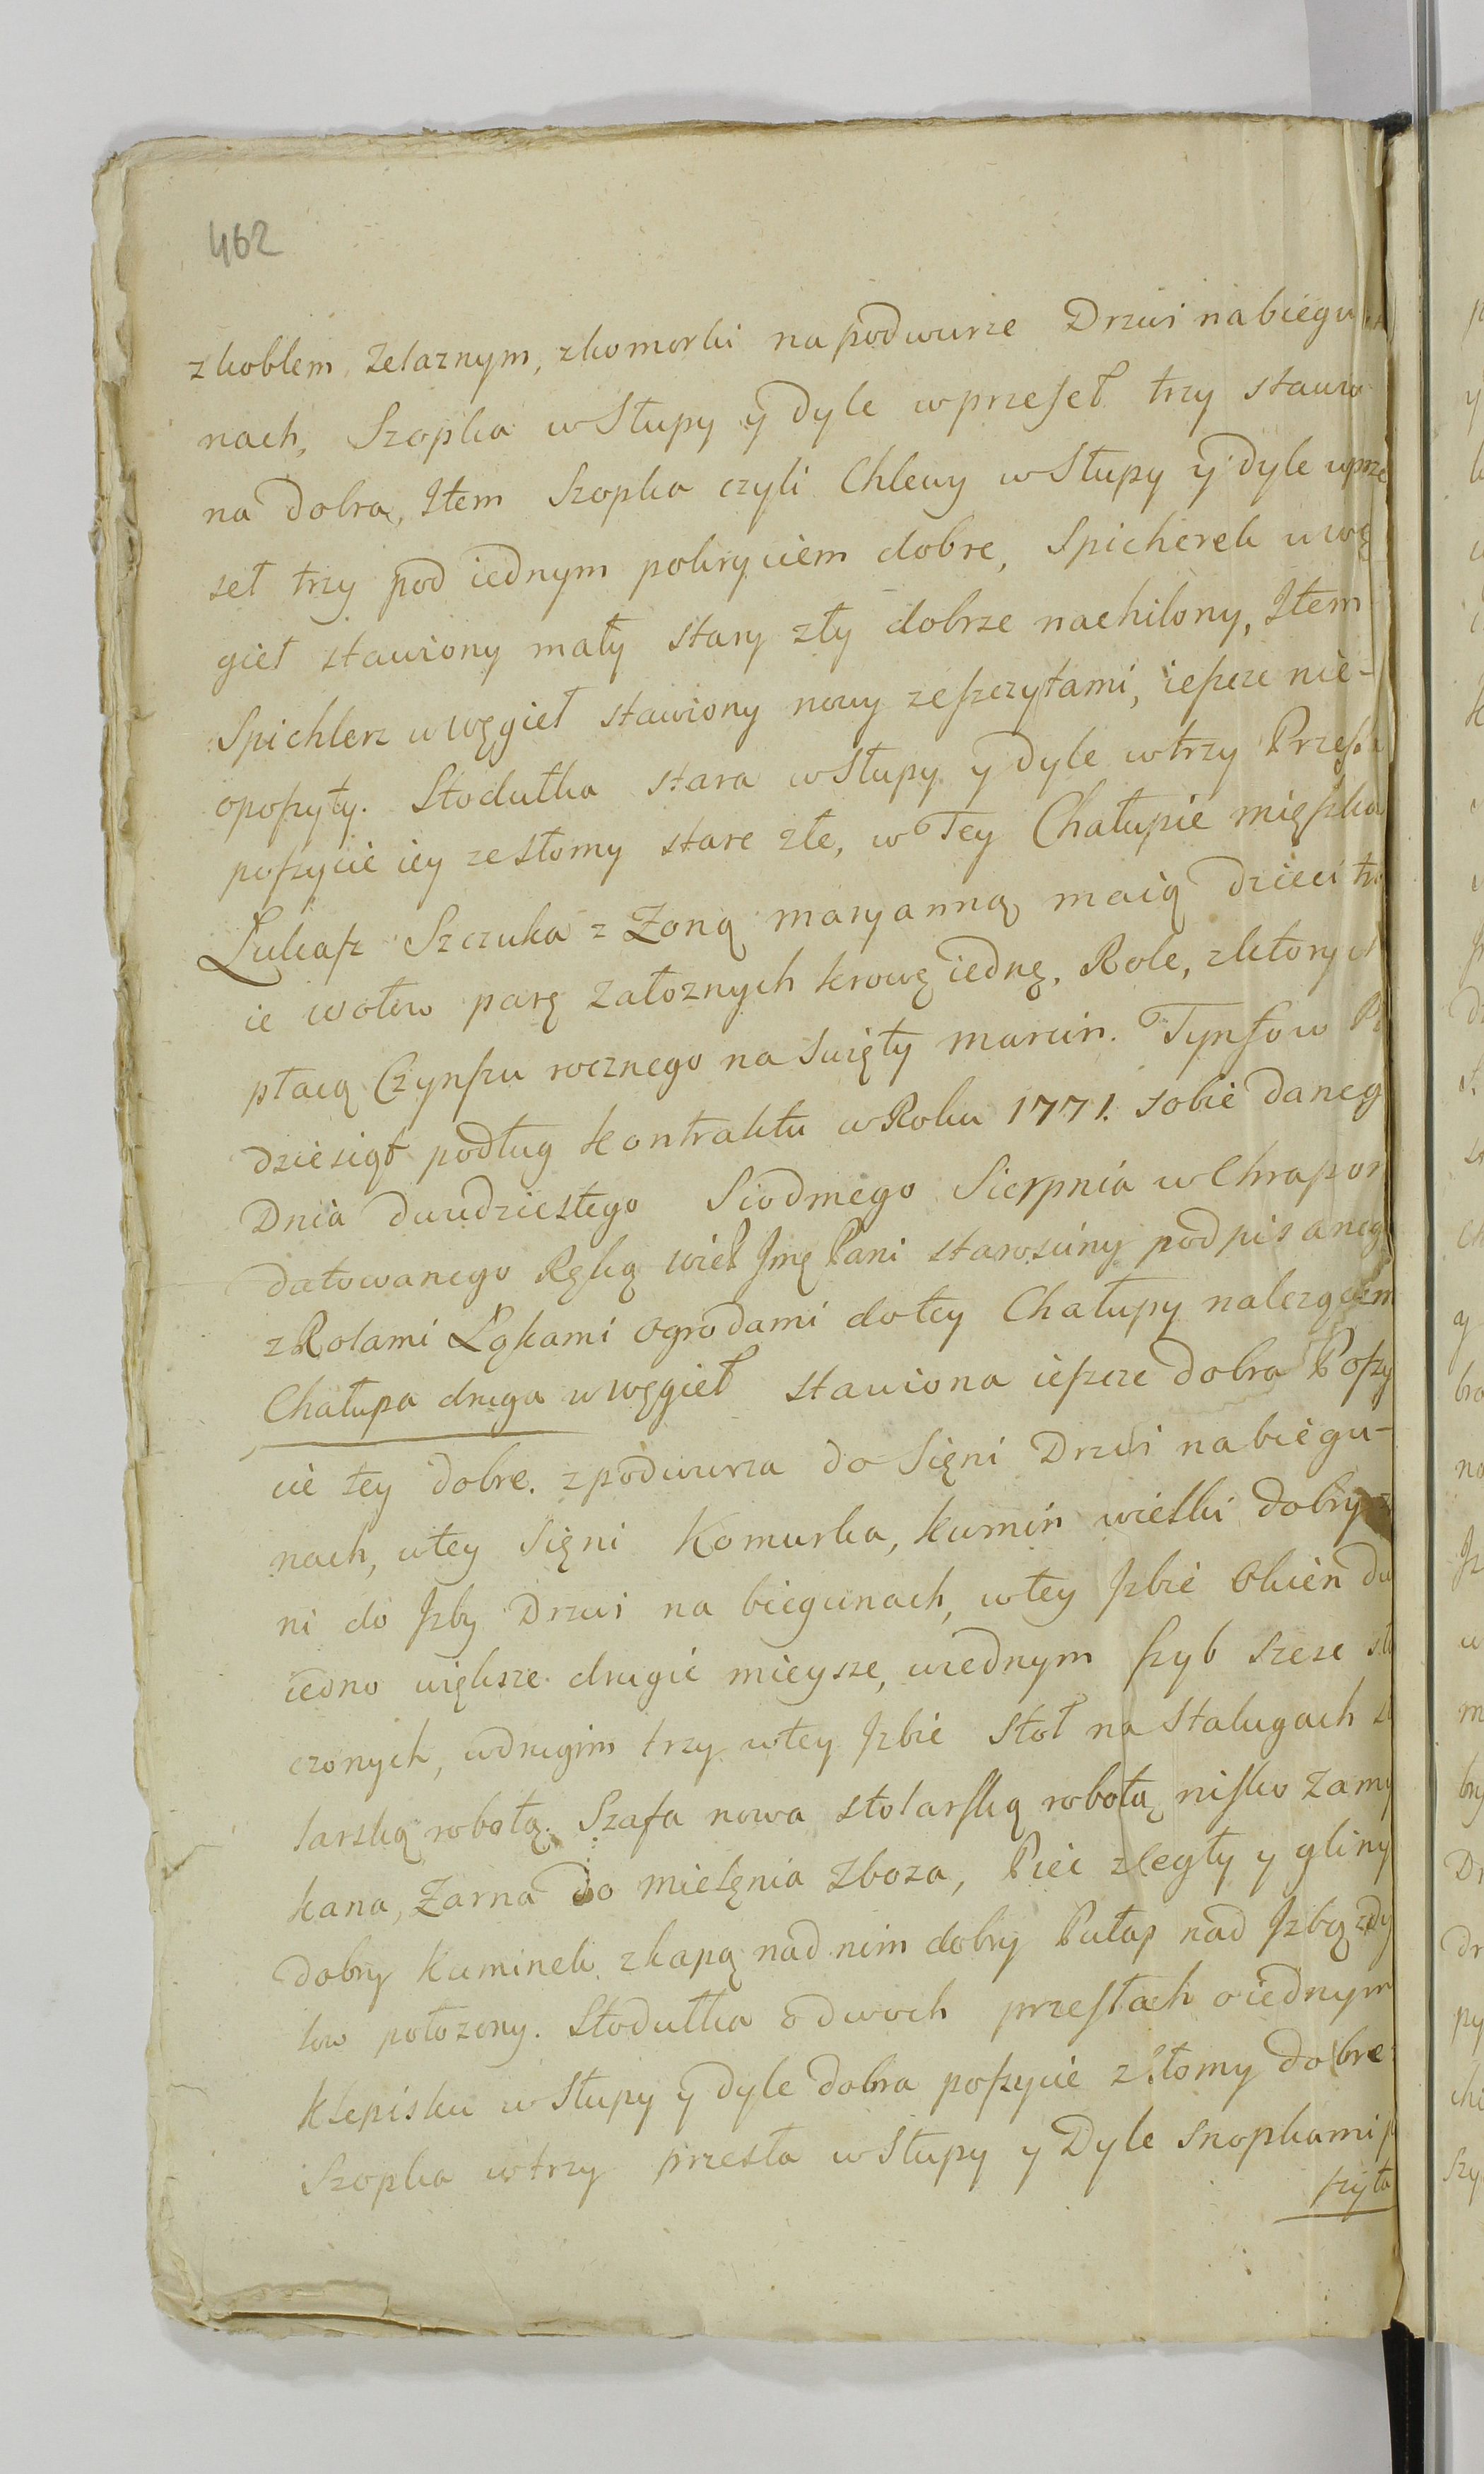 462
zkoblem Zelaznym, zkomorki napodwurze Drzwi nabiegu
nach, Szopka w Słupy ÿ dyle wprzeseł trzy stawio
na dobra, Item Szopka czyli Chlewy w Słupy ÿ dyle wprze
seł trzy pod iednym pokryciem dobre, Spicherek wwę
gieł stawiony mały stary zły dobrze nachilony, Item
Spichlerz wwęgieł stawiony nowy zeszczytami, ieszcze nie-
oposzyty. Stodułka stara w Słupy y dyle wtrzy Przesła
poszycie iey ze słomy stare złe, w Tey Chałupie mięszka
Łukasz Szczuka z Zoną maryanną maią dzieci tro
ie wołow parę Załoznych krowę iednę, Role, zktorych
płacą Czynszu rocznego na Swięty marcin. Tynfow
dziesiąt podług kontraktu w Roku 1771. sobie daneg
Dnia dwudziestego Siodmego Sierpnia w Chrapon
datowanego Ręką Wiel Jmę Pani starosciny podpisaneg
z Rolami Łąkami Ogrodami do tey Chałupy nalezącem
Chałupa druga wwęgieł stawiona ieszcze dobra Poszy
cie tey dobre. zpodwurza do Sięni Drzwi nabiegu-
nach, wtey Sięni Komurka, kumin wielki dobry
ni do Jzby Drzwi na biegunach, wtey Jzbie Okien dw
iedno większe drugie mieysze, wiednym szyb szesc
czonych, wdrugim trzy wtey Jzbie Stoł na Stalugach
larską robotą. Szafa nowa stolarską robotą nisko Zamy
kana, Zarna do mielęnia Zboza, Piec zCegły y gliny
dobry kuminek zkapą nad nim dobry Pułap nad Jzbą zdy
low połozony. Stodułka o dwoch przesłach oiednym
klepisku w Słupy ÿ dyle dobra poszycie zSłomy dobre
Szopka wtrzy przesła w Słupy y Dyle Snopkami
szyta